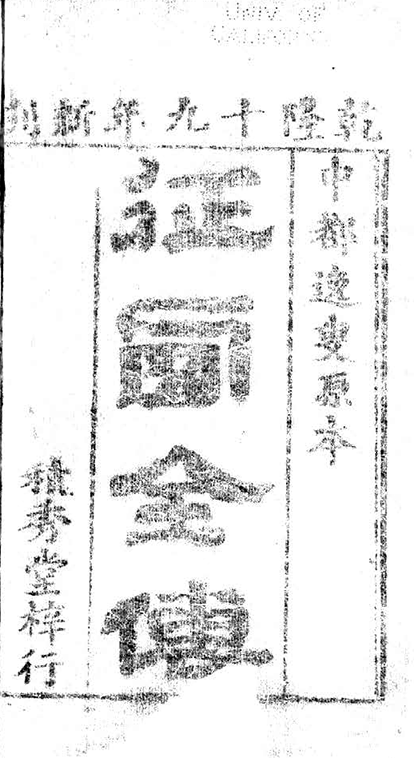 UNIV. OF
CALIFORNIA
乾隆十九年新
中都逸叟原本
征西全傳
積秀堂梓行